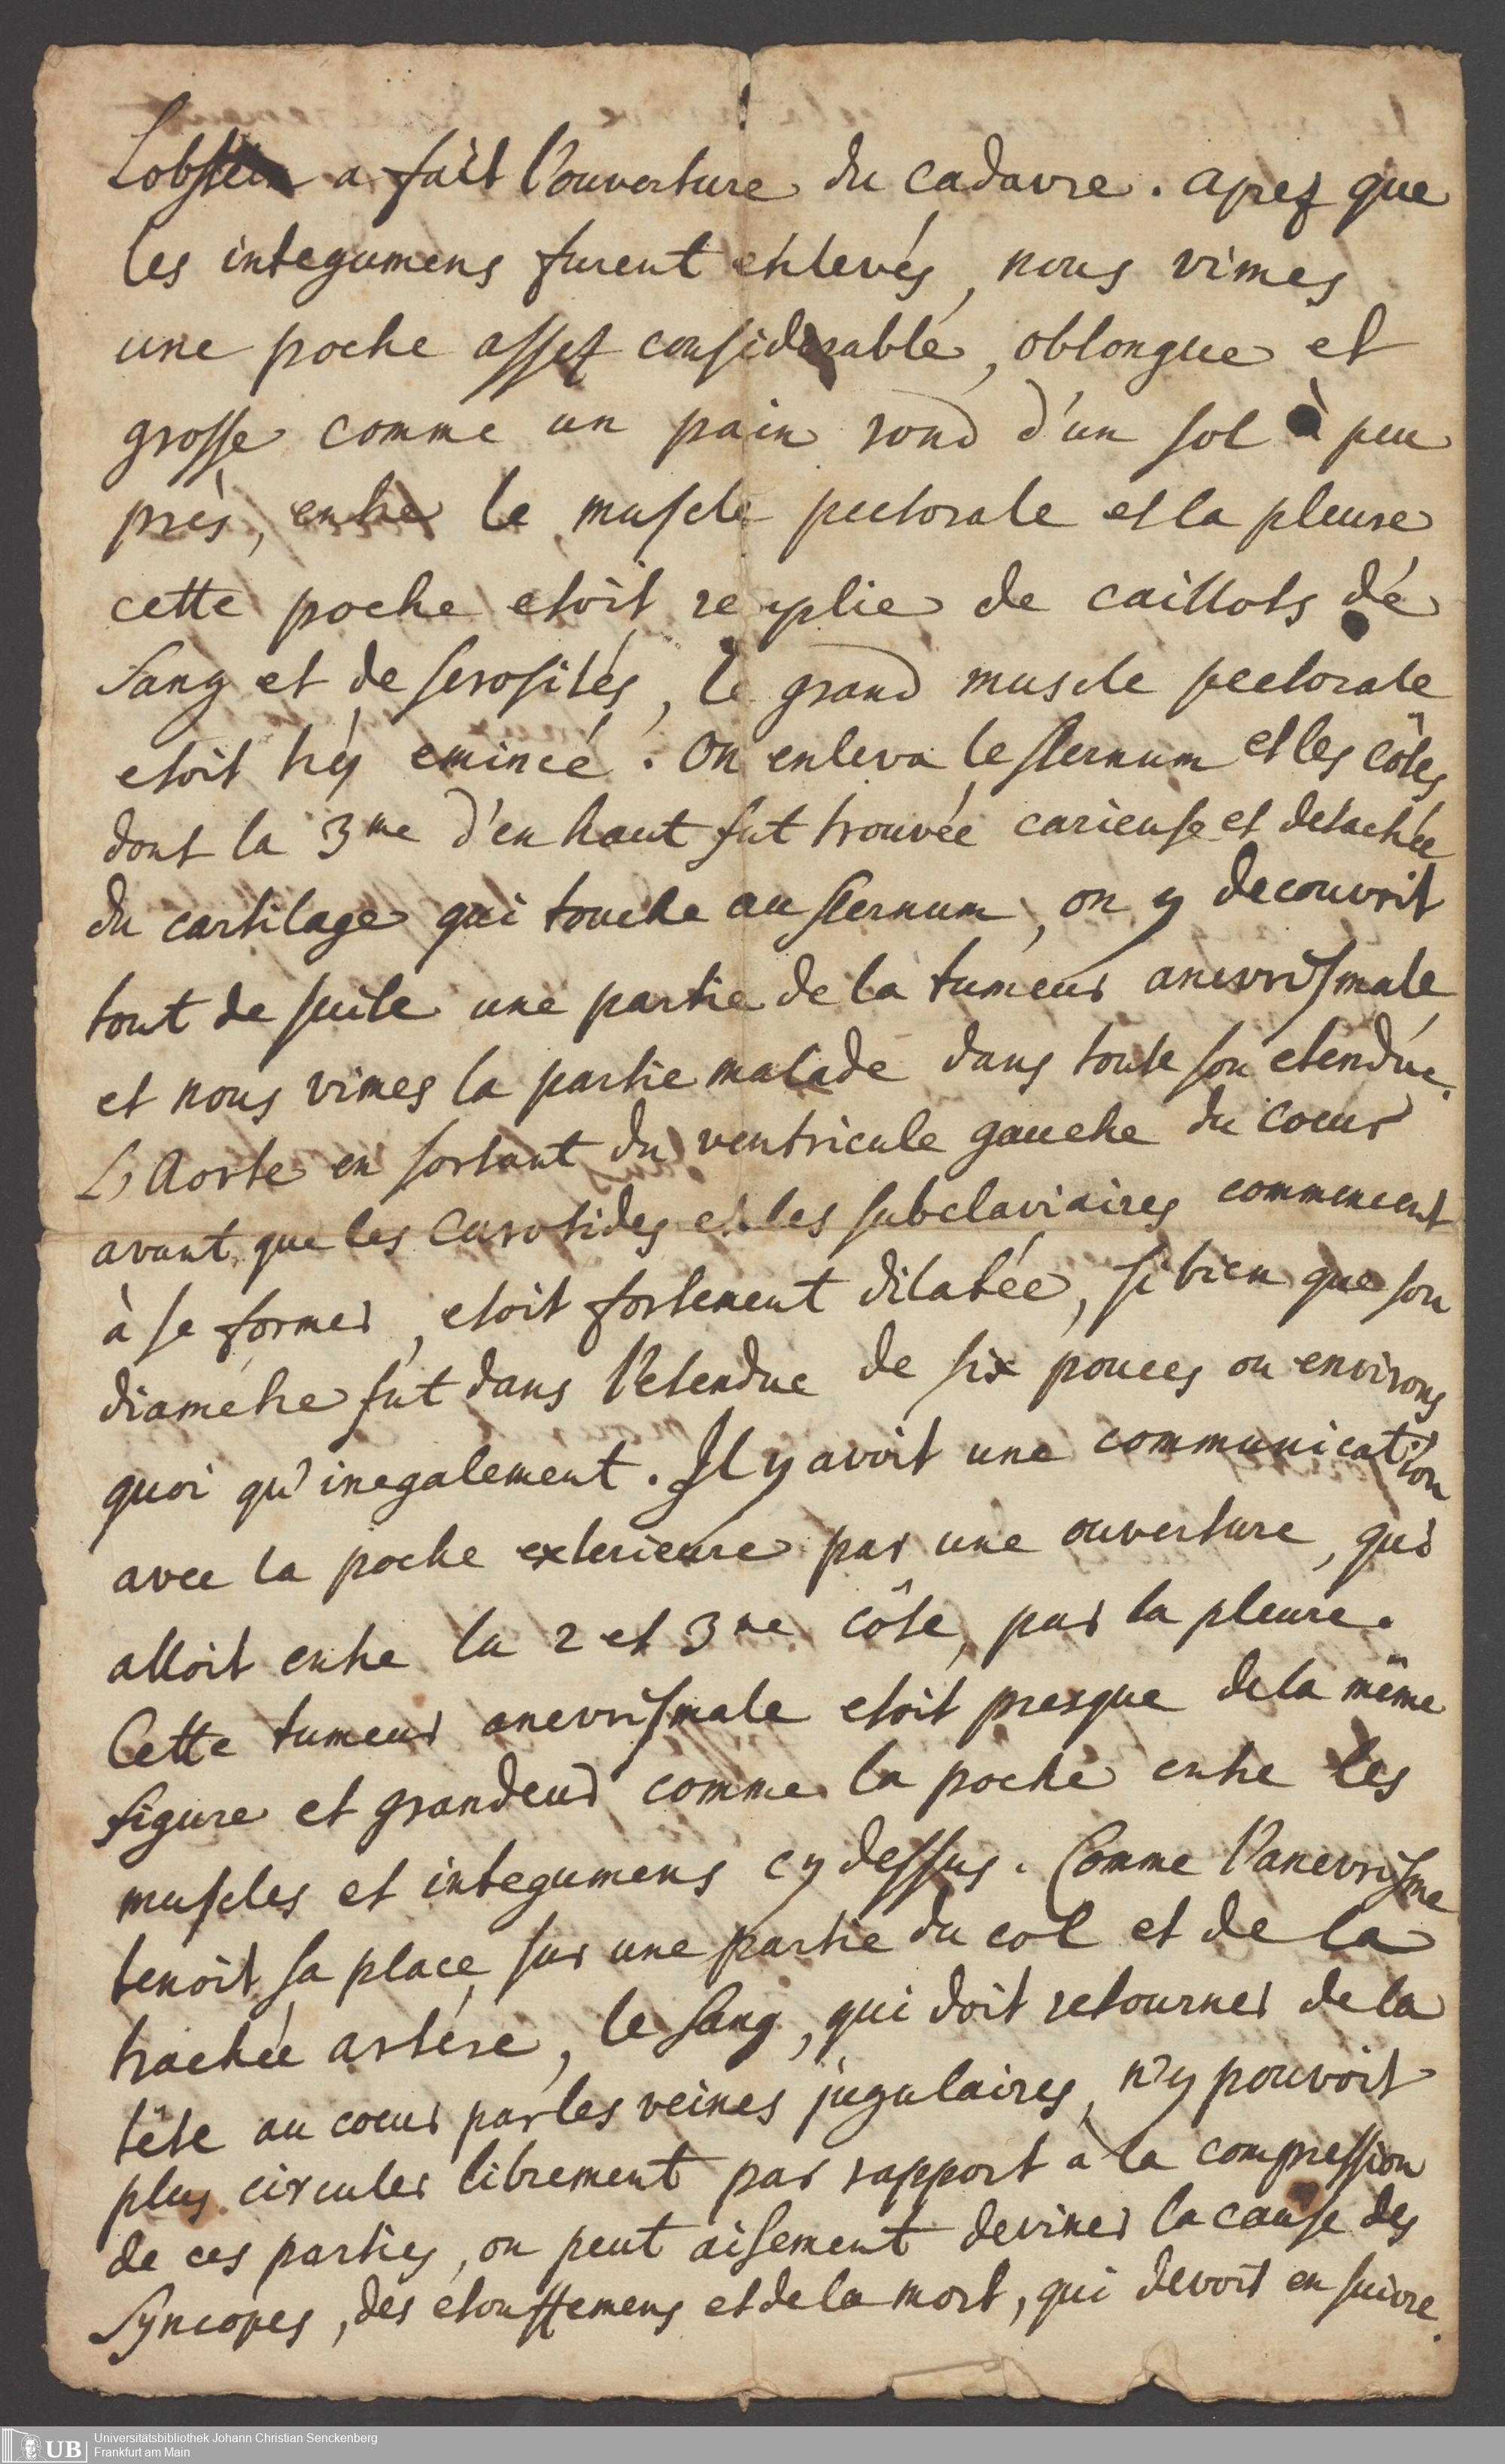 Lobstein a fait l'ouverture du cadavre. aprez que
les integumens furent enlevés, nous vimes
une poche assez considerable, oblongue et
grosse comme un pain rond d'un sol à peu
près, entre le muscle pectorale et la pleure
cette poche etoit remplie de caillots de
sang et de serosités, le grand muscle pectorale
etoit trés emincé. On enleva le sternum et les côtes
dont la 3me d'en haut fut trouvée carieuse et detachée
du cartilage qui touche au sternum, on y decouvrit
tout de suite une partie de la tumeur anevrismale
et nous vimes la partie malade dans toute son etendüe.
L'Aorte en sortant du ventricule gauche du coeur
avant que les Carotides et les subclaviaires commencent
à se former, etoit fortement dilatée, si bien que son
diametre fut dans l'etendue de six pouces ou environs
quoi qu'inegalement. Il y avoit une communication
avec la poche exterieure par une ouverture, qui
alloit entre la 2 et 3me côte, par la pleure.
Cette tumeur anevrismale etoit presque de la même
figure et grandeur comme la poche entre les
muscles et integumens cy dessus. Comme l'anevrisme
tenoit sa place sur une partie du col et de la
trachée artére, le sang, qui doit retourner de la
tête au coeur par les veines jugulaires, n'y pouvoit
plus circuler librement par rapport à la compression
de ces parties, on peut aisement deviner la cause des
Syncopes, des etouffemens et de la mort, qui devoit en suivre.
UB
Universitätsbibliothek Johann Christian Senckenberg
Frankfurt am Main